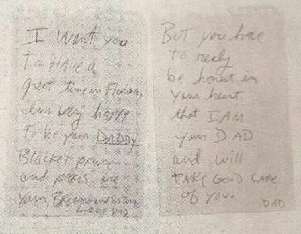 I want you
To have a
great time in Florida,
I'm very happy
to be your DADDY
Blacket
and
your
But you have
to really
be honest in
your heart
that I AM
your DAD
and will
TAKE GOOD CARE
of you.
DAD